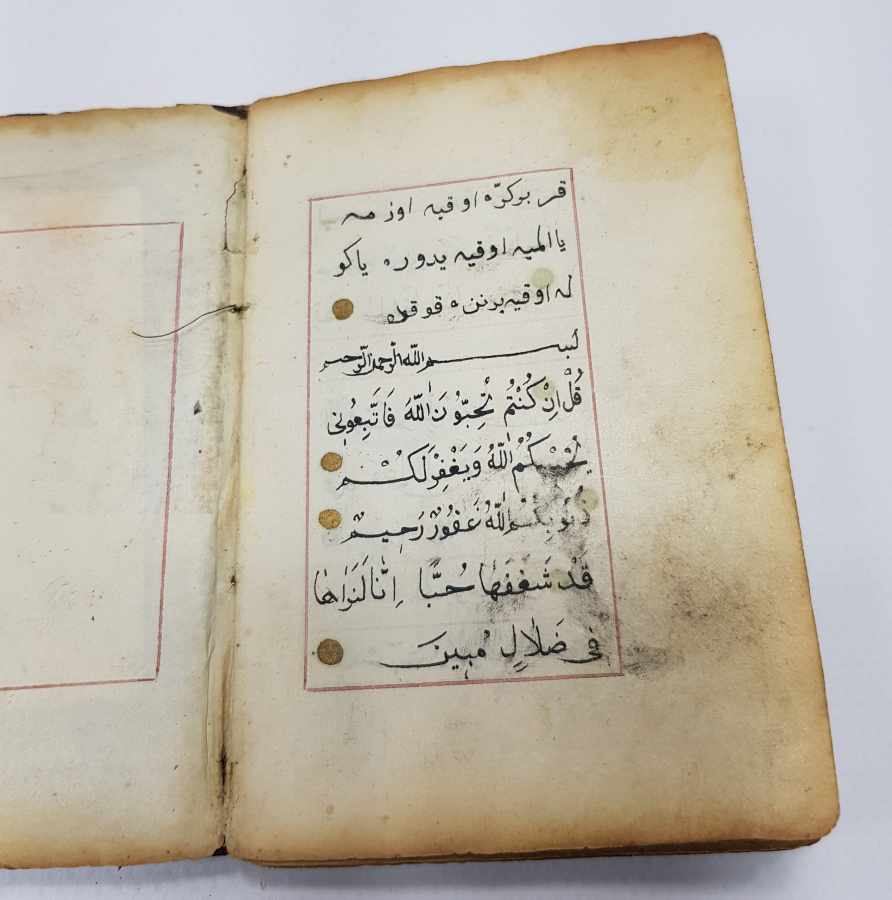 قر بوكرّه اوقيه اوزمه
يا المیه اوقيه يدوره ياكو
له اوقيه برننه قوقوله
بسم الله الرحمن الرحيم
قُلْ اِنْ كُنْتُمْ تُحِبّوُنَ اللّٰهَ فَاتَّبِعُونٖى
يُحْبِبْكُمُ اللّٰهُ وَيَغْفِرْلَكُمْ
ذُنُوبَكُمْ وَاللّٰهُ غَفُورٌ رَحٖيمٌ
قَدْ شَغَفَهَا حُبًّا اِنَّا لَنَرٰاهَا
فٖى ضَلَالٍ مُبٖينَ